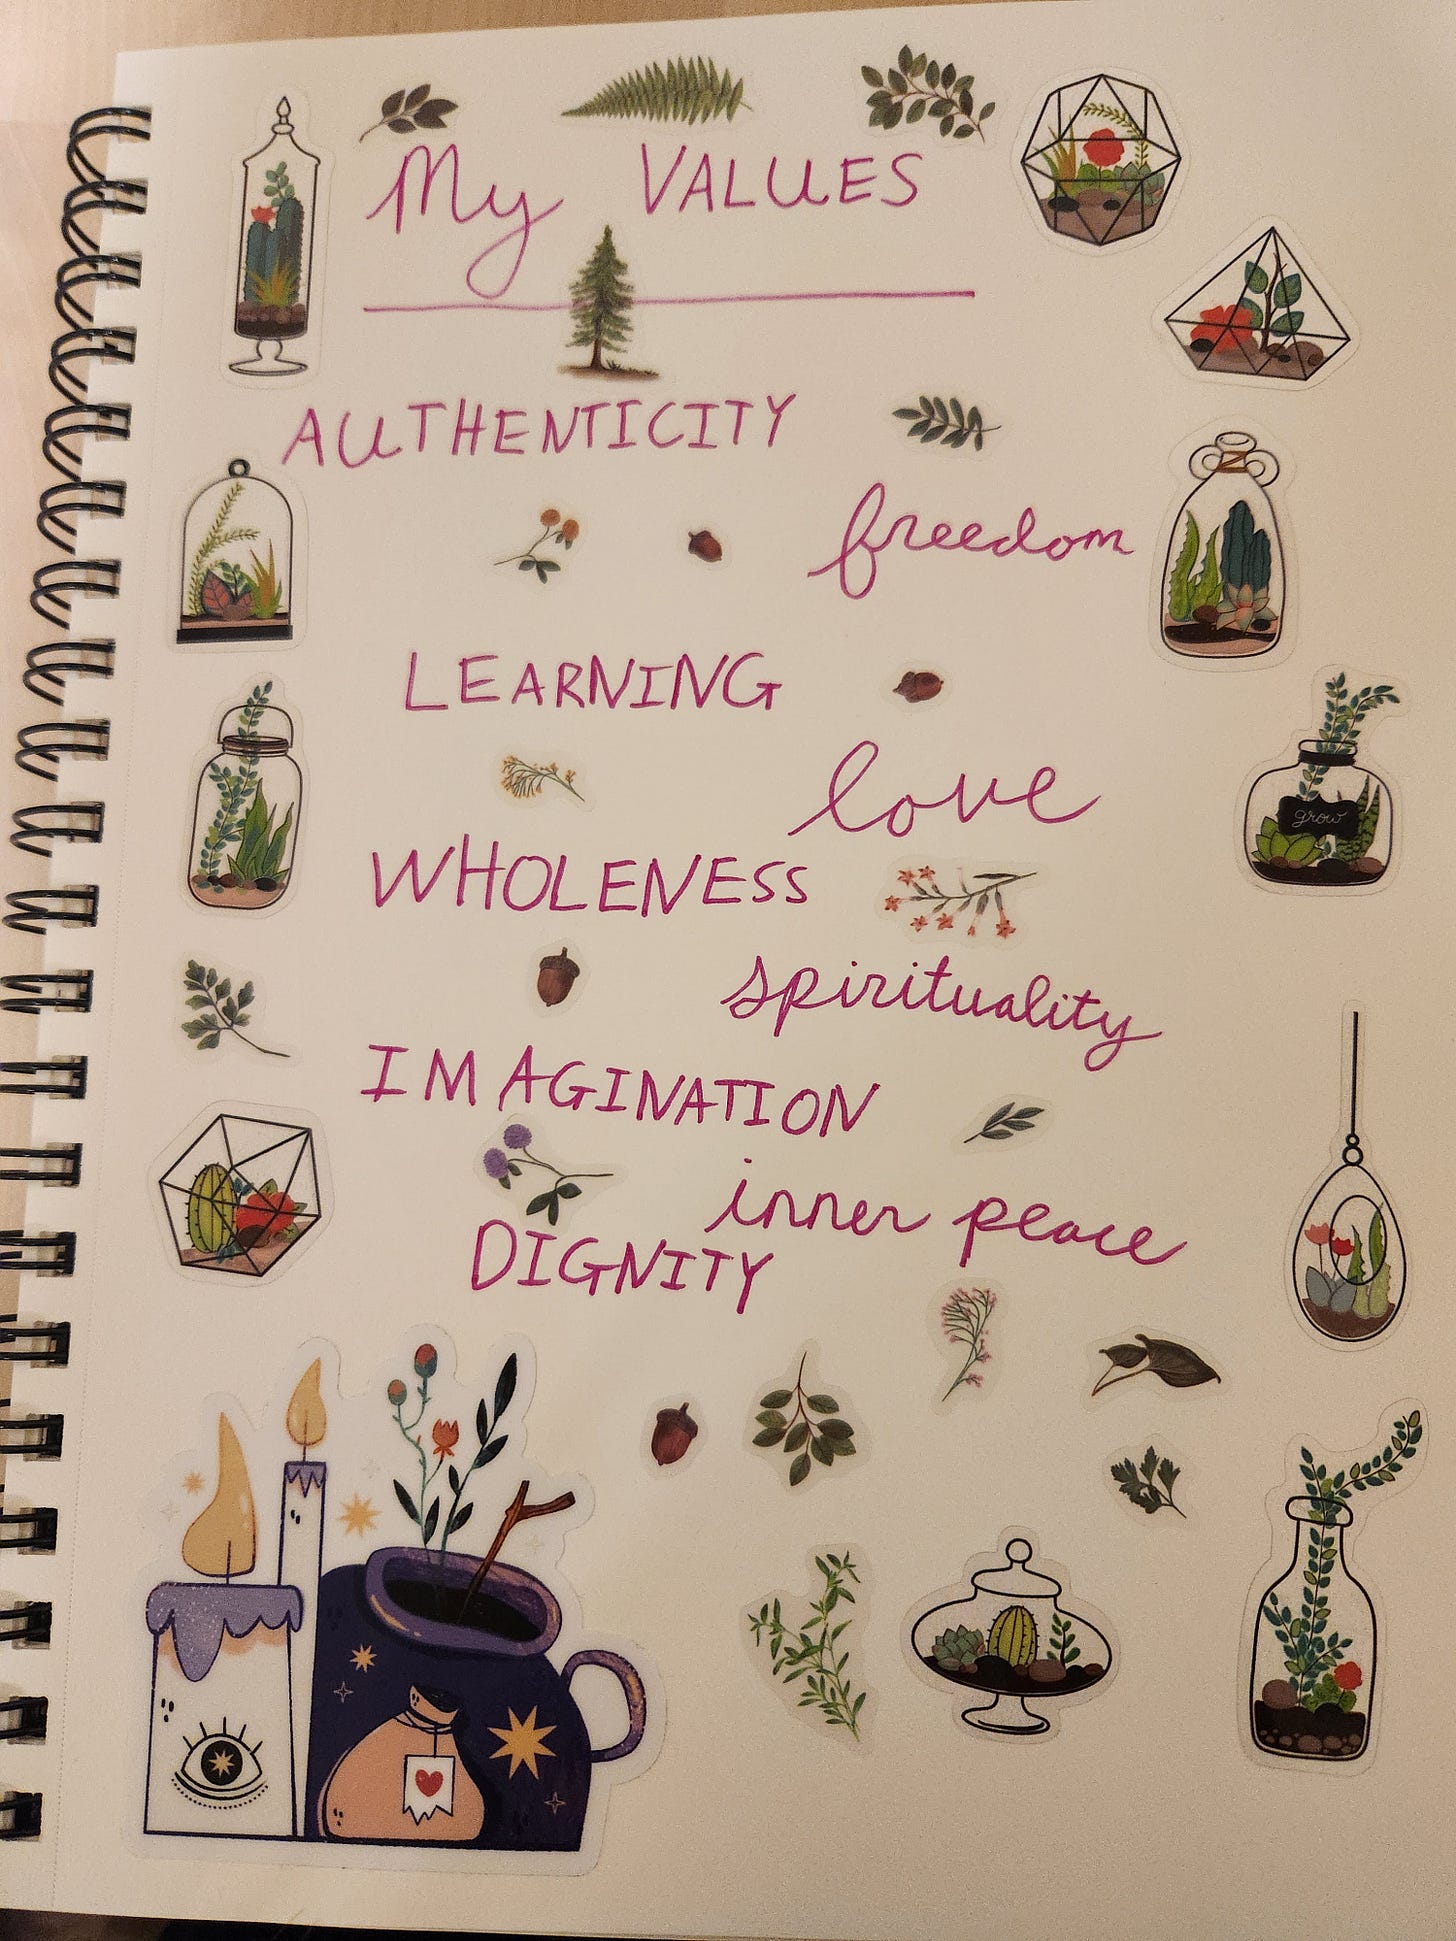 My VALUES
AUTHENTICITY
freedom
LEARNING
love
grow
WHOLENESS
spirituality
IMAGINATION
inner peace
DIGNITY